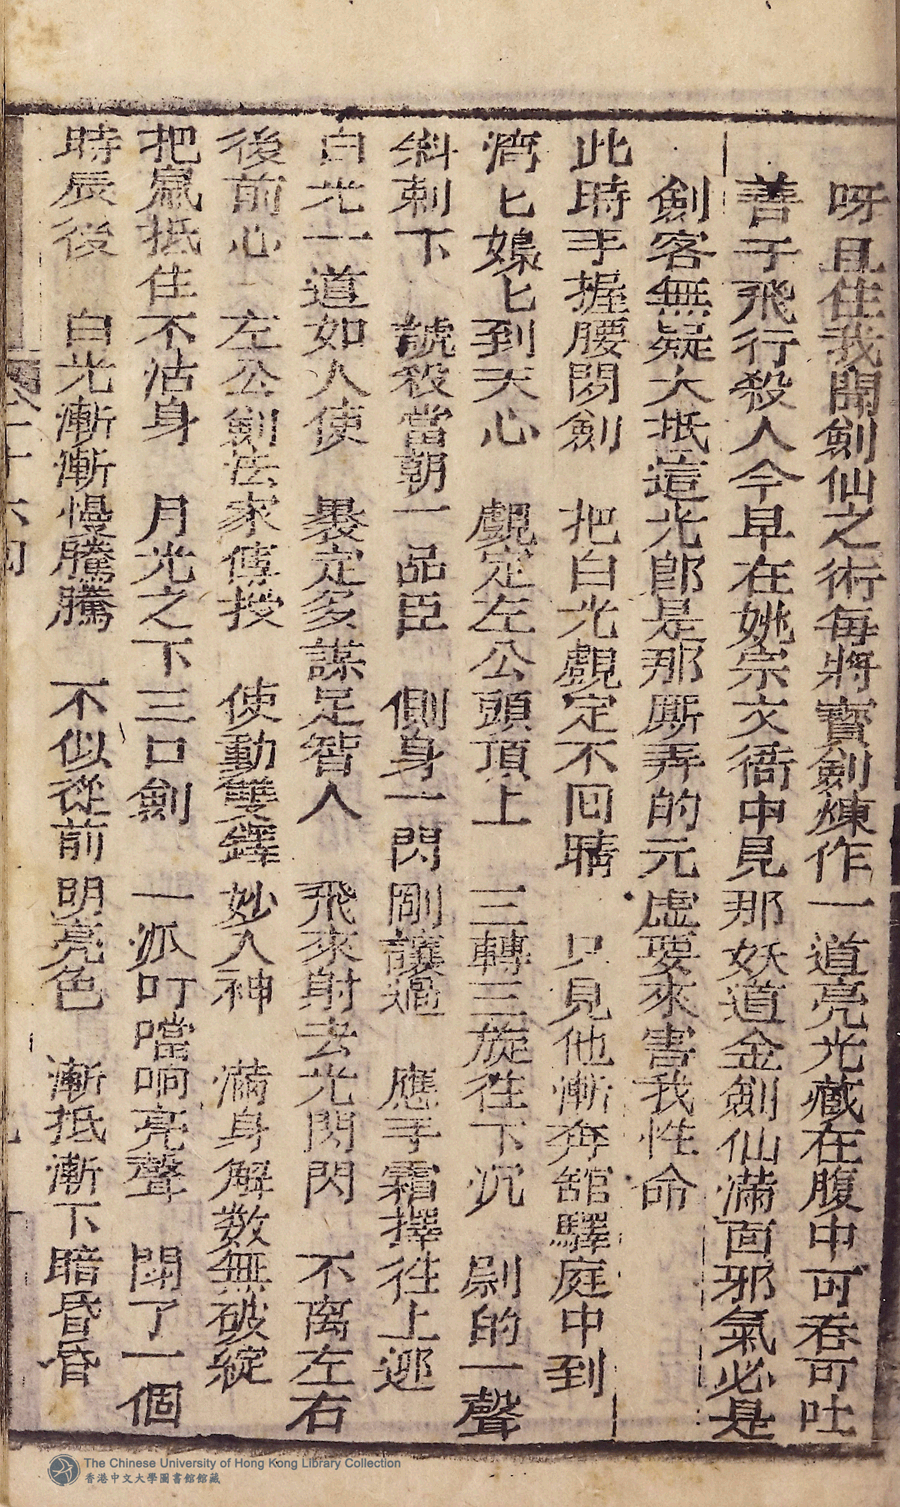 呀且住我聞劍仙之術每將寶劍煉作一道亮光藏在腹中可吞可吐
善于飛行殺人今早在姚宗文衙中見那妖道金劍仙滿面邪氣必是
劍客無疑大抵這光郎是那厮弄的元虛要來害我性命
此時手握腰閒劍 把白光覷定不回睛 只見他漸奔舘驛庭中到
濟匕嫋匕到天心 覷定左公頭頂上 三轉三旋往下沉 剔的一聲
斜刺下 號殺當朝一品臣 側身一閃剛讓過 應手霜擇往上迎
白光一道如人使 暴定多謀足智人 飛來射去光閃閃 不离左右
後前心 左公劍法家傳授 使動雙鋒妙入神 滿身解数無破綻
把寫抵住不沾身 月光之下三口劍 一派叮噹响亮聲 閙了一個
時辰後 白光漸漸慢騰騰 不似從前明亮色 漸抵漸下暗昏昏
The Chinese University of Hong Kong Library Collection
香港中文大學圖書館館藏